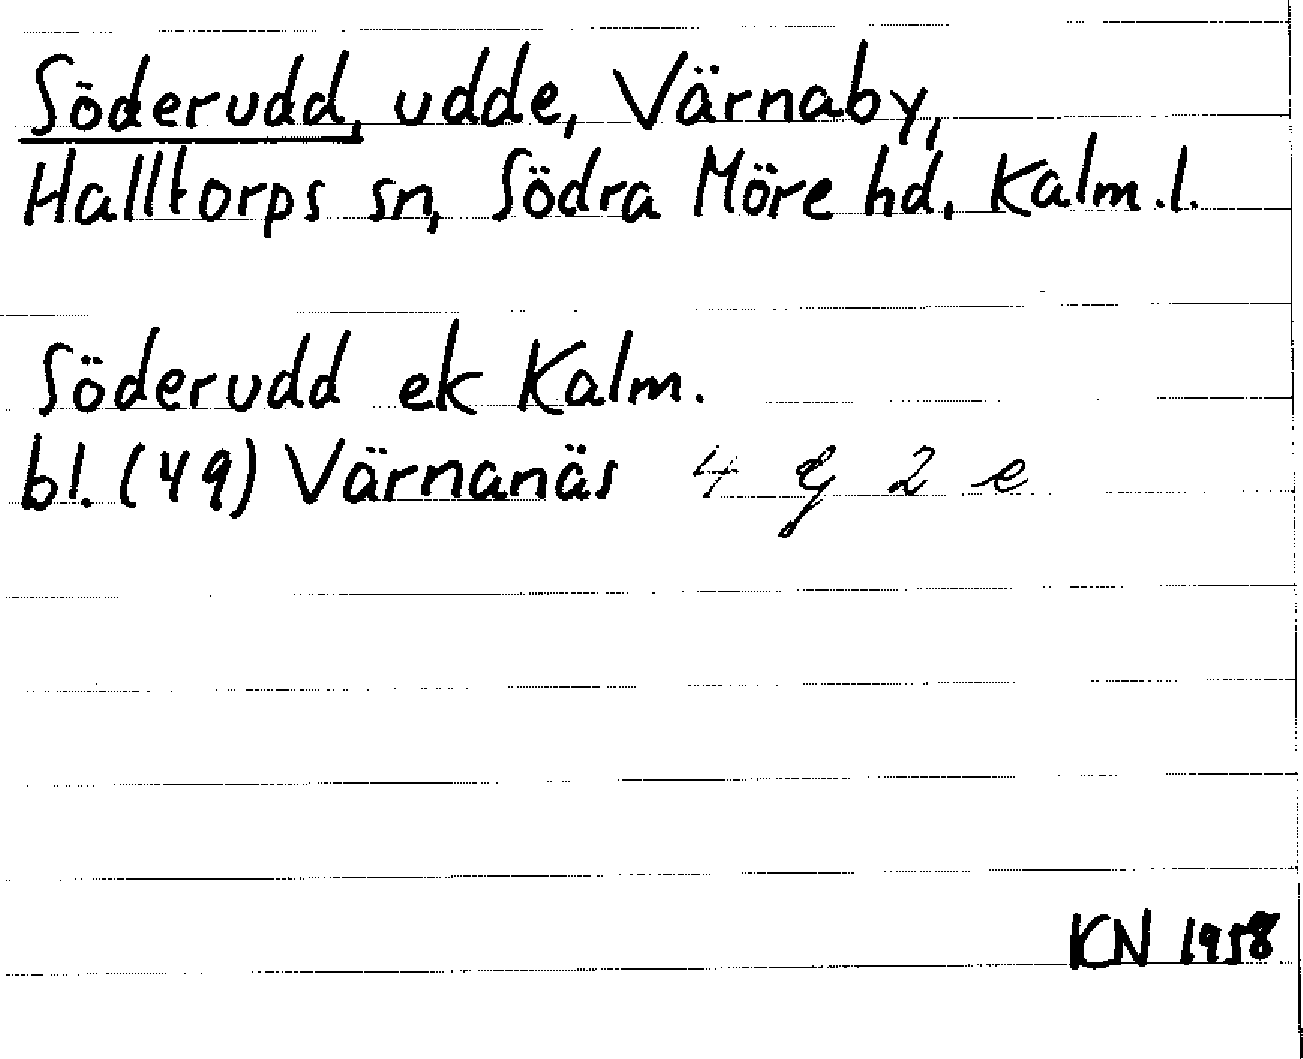 Söderudd, udde, Värnaby,
Halltorps sn, Södra Möre hd, Kalm.l.
Söderudd ek Kalm.
bl. (49) Värnanäs 4 G 2 e
KN 1958